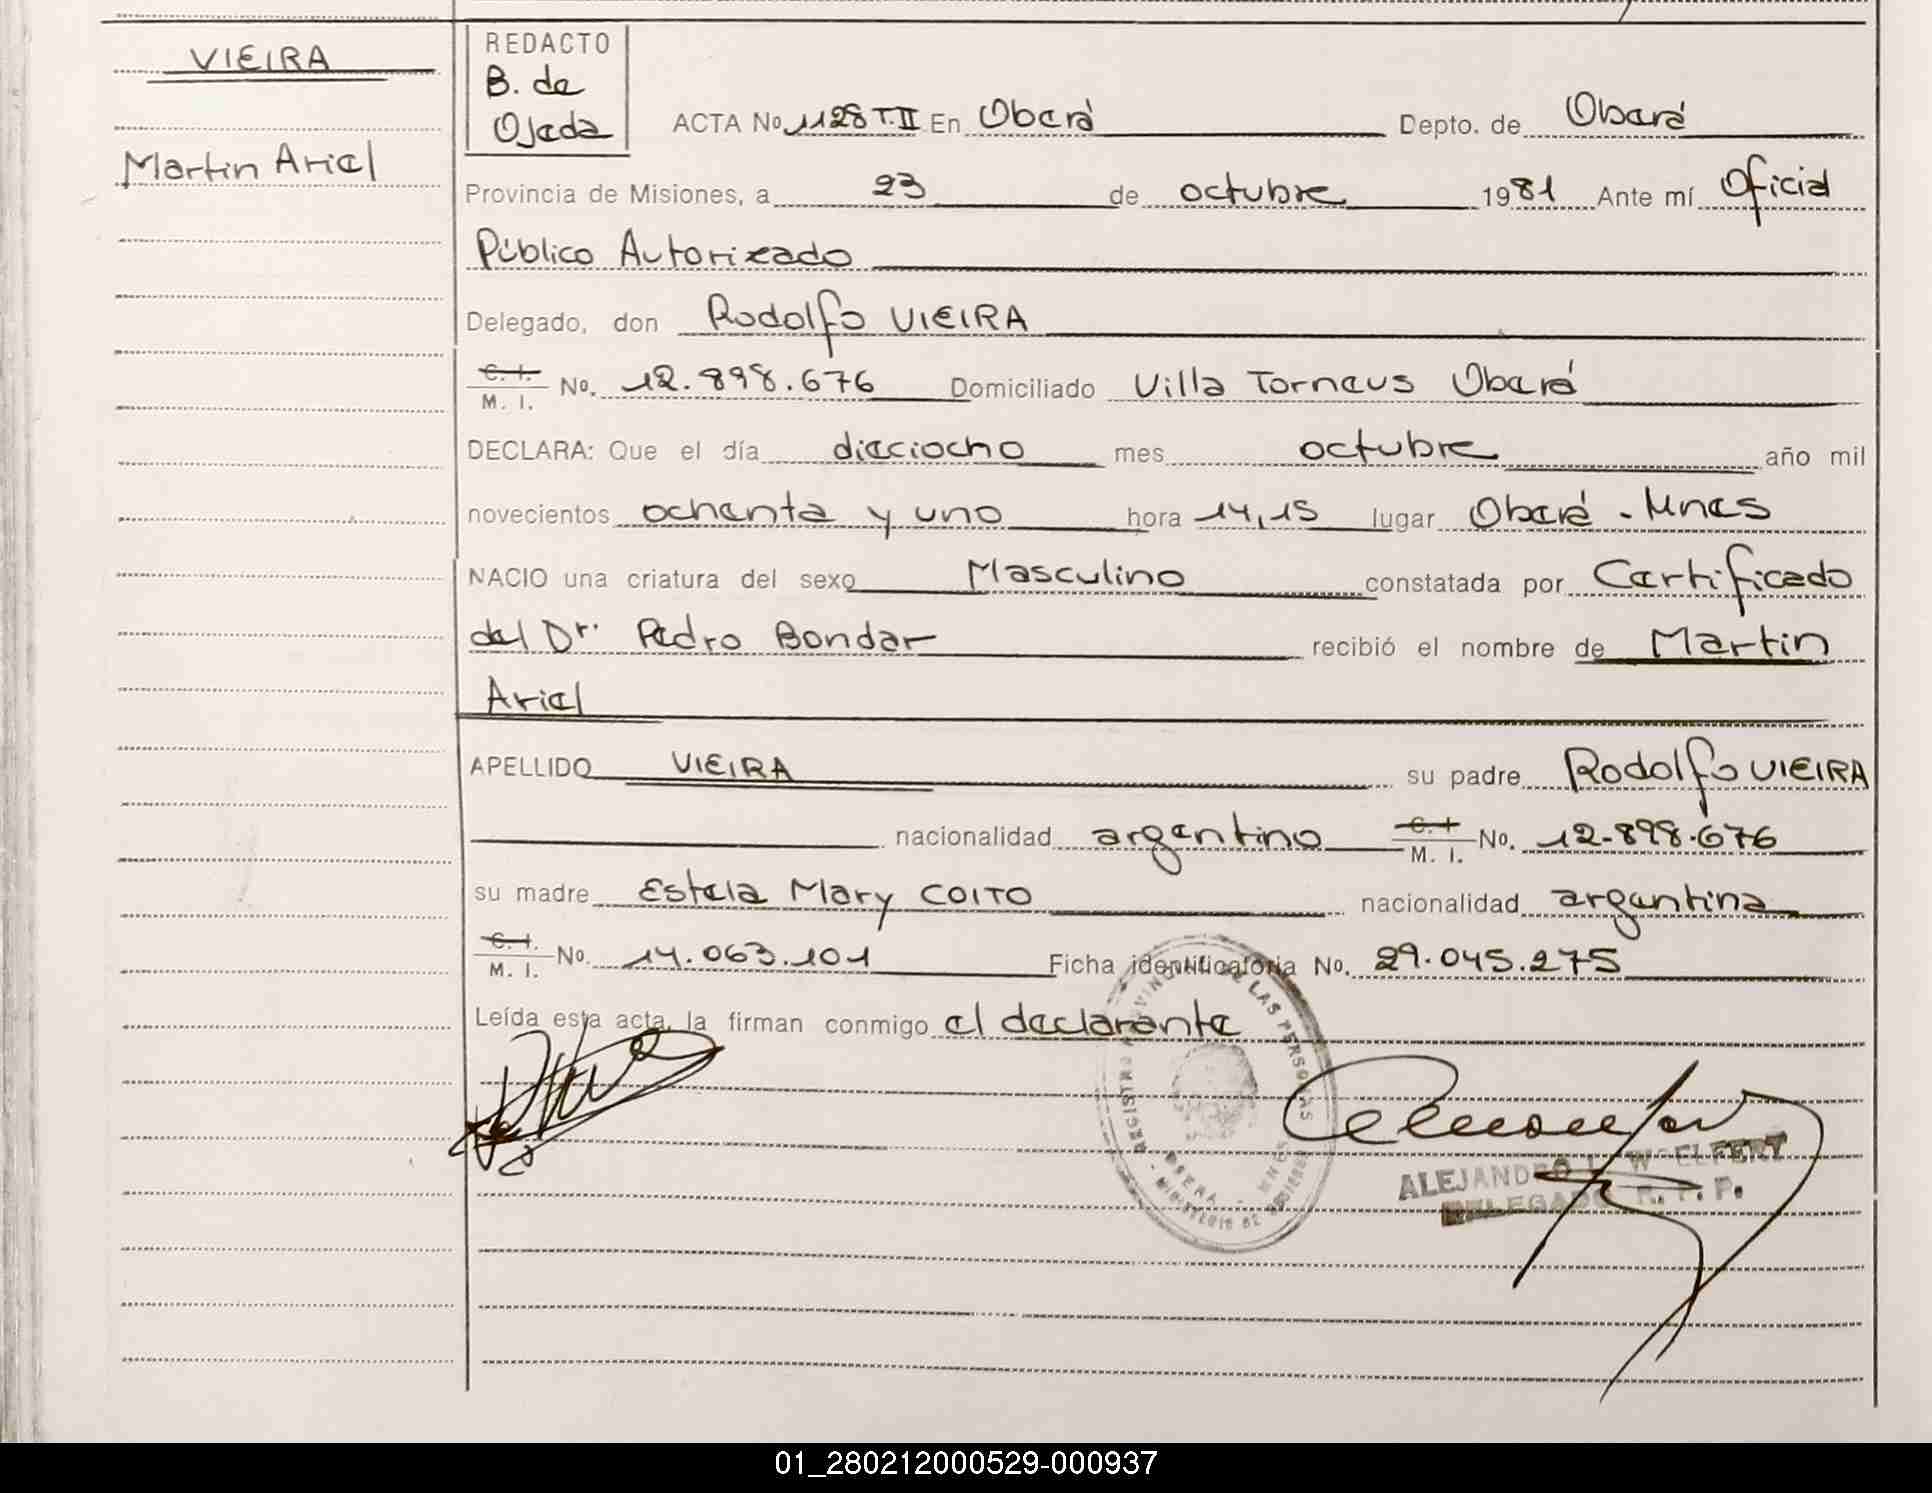 VIEIRA
Martin Ariel
REDACTO
B. de
Ojeda
ACTA No 1128 T.II En Oberá Depto. de Oberá
Provincia de Misiones, a 23 de octubre 1981 Ante mí Oficial
Público Autorizado
Delegado, don Rodolfo VIEIRA
C. I.
M. I. No. 12.898.676 Domiciliado Villa Torneus Oberá
DECLARA: Que el día dieciocho mes octubre año mil
novecientos ochenta y uno hora 14,15 lugar Oberá - Mnes
NACIO una criatura del sexo Masculino constatada por Certificado
del Dr. Pedro Bondar recibió el nombre de Martin
Ariel
APELLIDO VIEIRA su padre Rodolfo VIEIRA
nacionalidad argentino C. I. M. I. No. 12.898.676
su madre Estela Mary COITO nacionalidad argentina
C. I.
M. I. No. 14.063.101 Ficha identificatoria No. 29.045.275
Leída esta acta, la firman conmigo el declarante
REGISTRO PROVINCIAL DE LAS PERSONAS
OBERA - MNES
MINISTERIO DE GOBIERNO
ALEJANDRO WOELFERT
DELEGADO R. P. P.
01_280212000529-000937